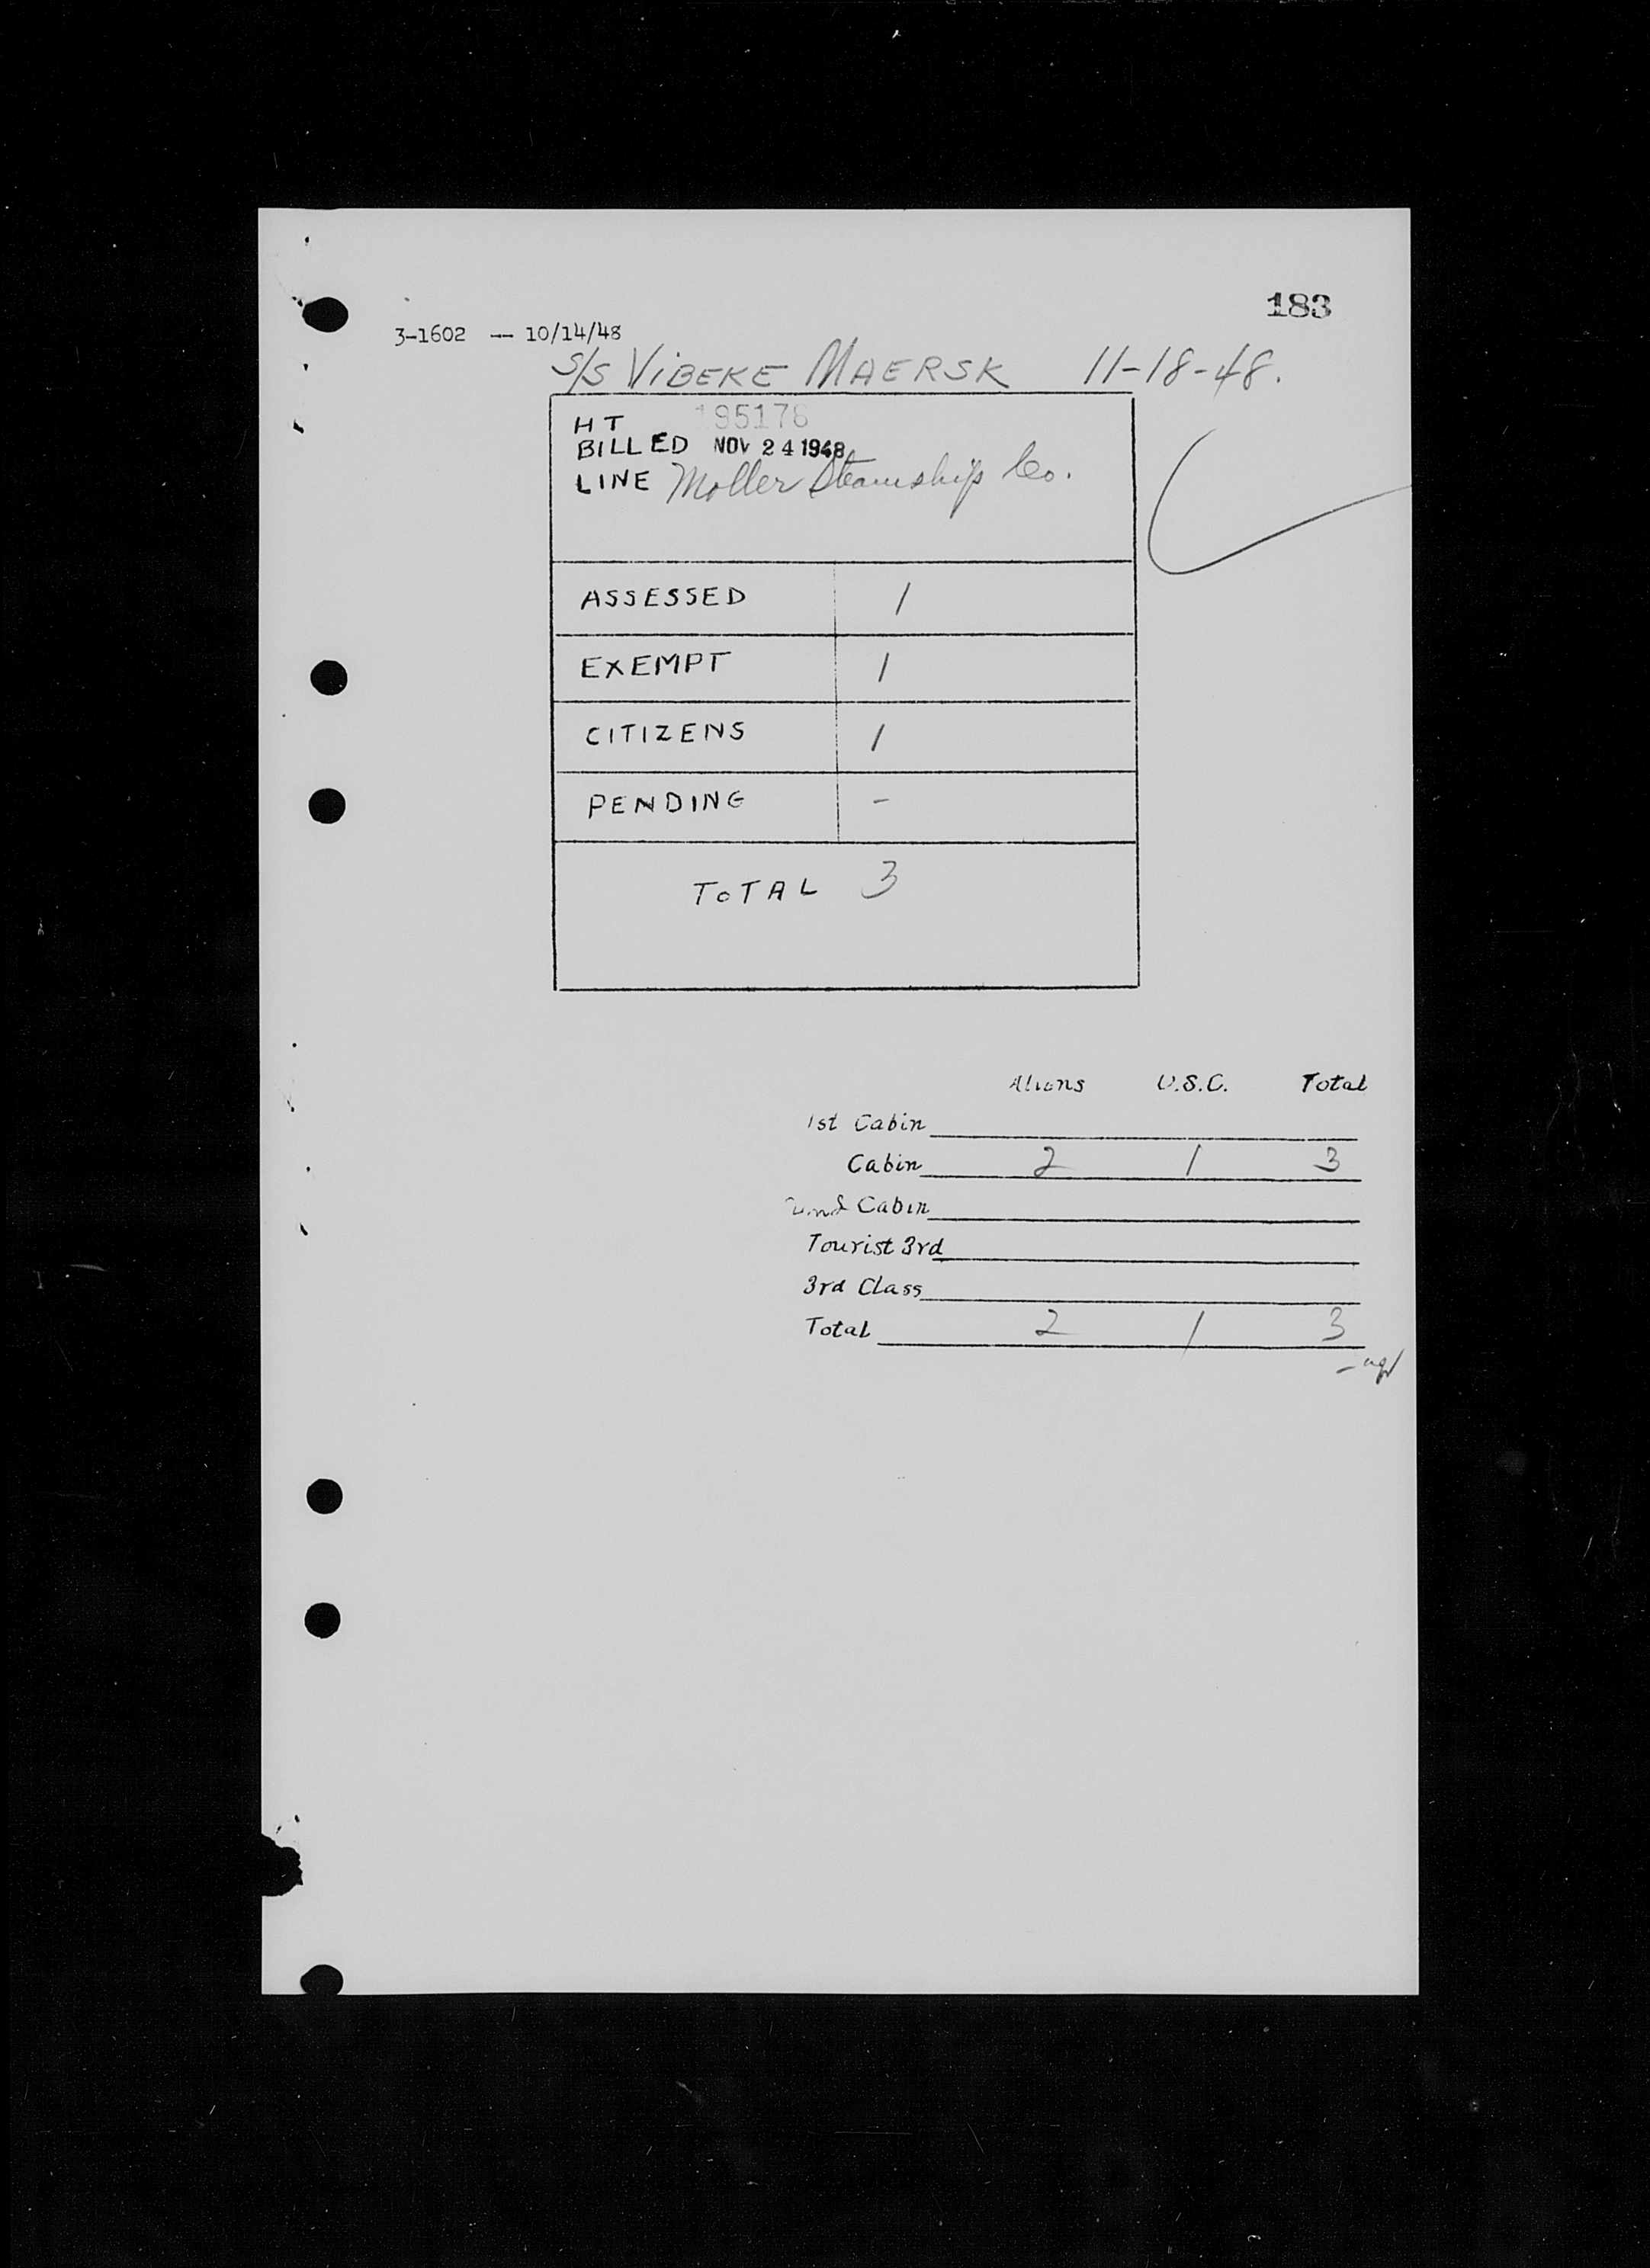 183
3-1602 -- 10/14/48
S/S VIBEKE MAERSK 11-18-48.
HT 195176
BILLED NOV 24 1948
LINE Moller Steamship Co.
ASSESSED 1
EXEMPT 1
CITIZENS 1
PENDING -
TOTAL 3
Aliens U.S.C. Total
1st Cabin
Cabin 2 1 3
Cabin
Tourist 3rd
3rd Class
Total 2 1 3